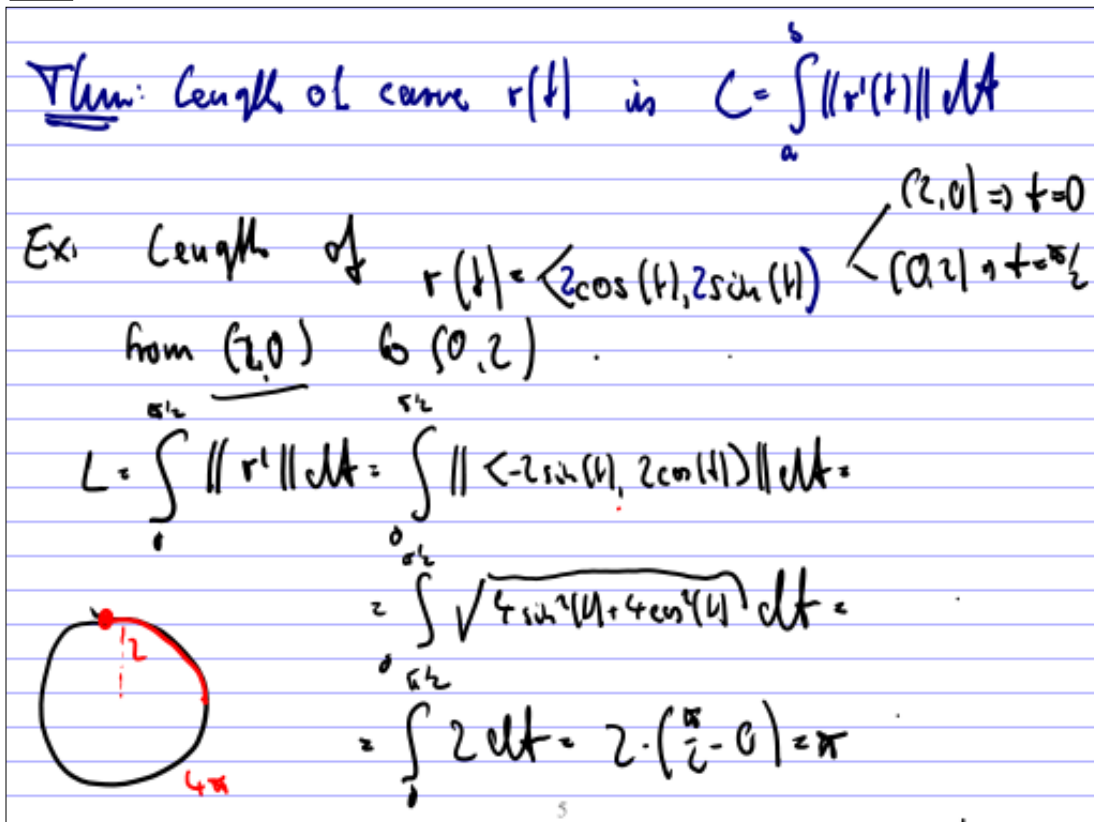 Thm: Length of curve r(t) is L = ∫_a^b ||r'(t)|| dt
(2,0) => t=0
Ex: Length of r(t) = <2cos(t), 2sin(t)>
(0,2) => t=π/2
from (2,0) to (0,2).
L = ∫_0^{π/2} ||r'|| dt = ∫_0^{π/2} ||<-2sin(t), 2cos(t)>|| dt =
= ∫_0^{π/2} √(4sin²(t)+4cos²(t)) dt =
2
= ∫_0^{π/2} 2 dt = 2·(π/2 - 0) = π
4π
5